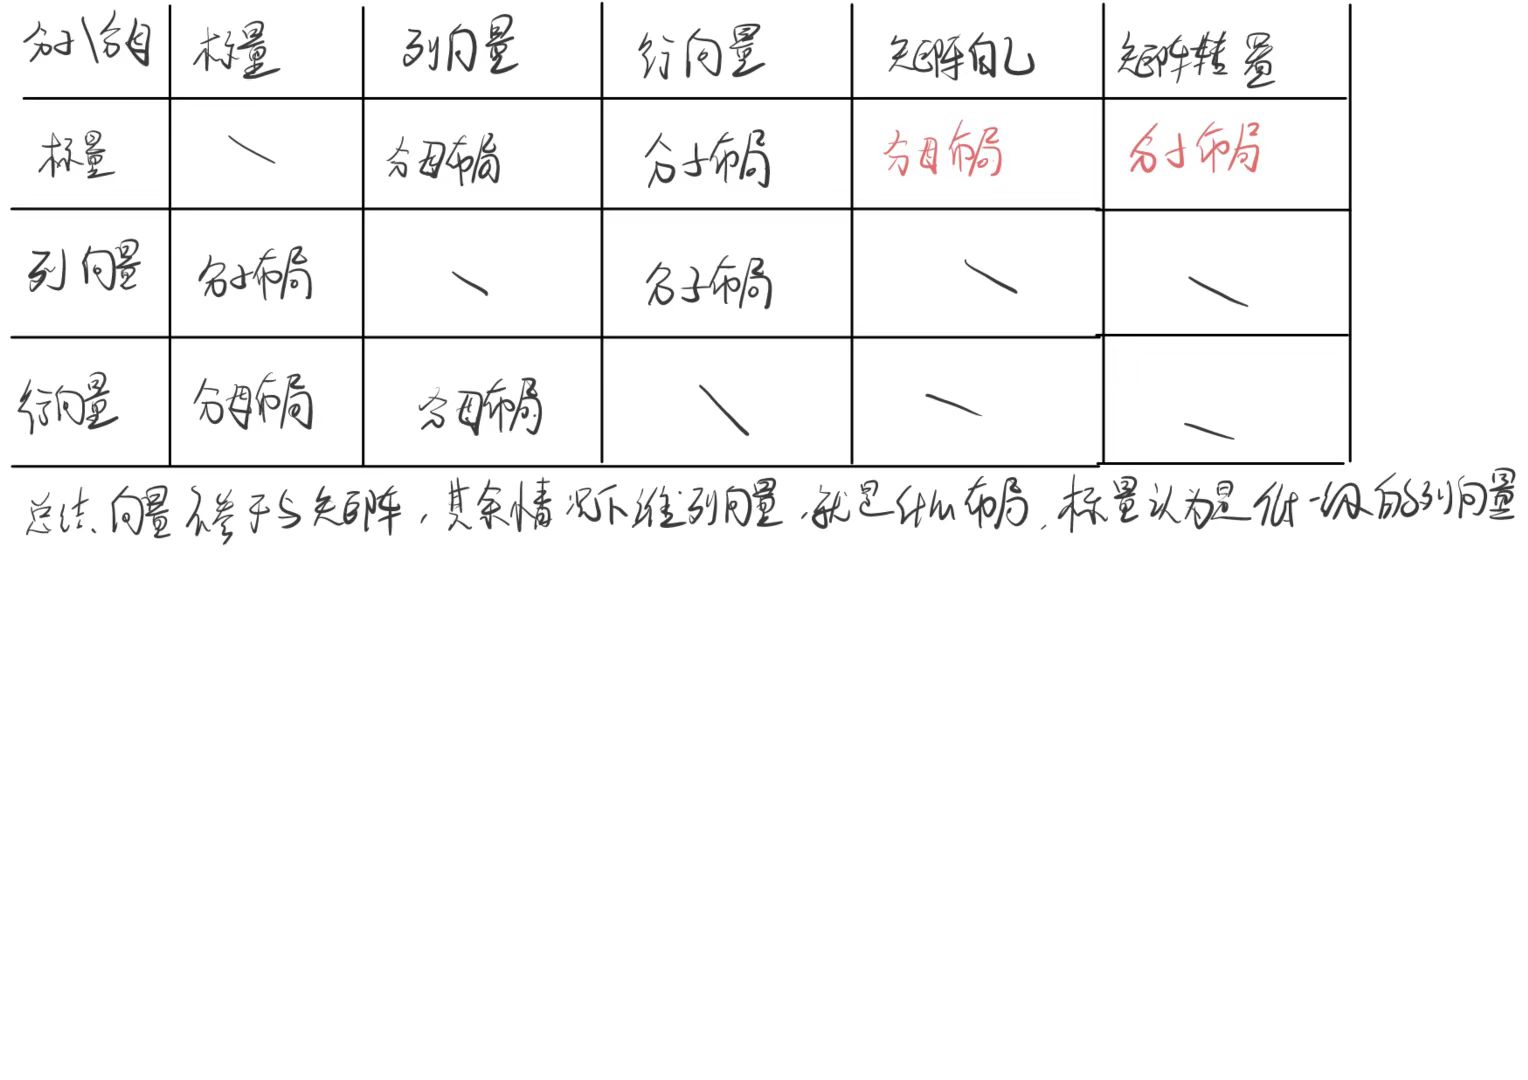 分子\分母 标量 列向量 行向量 矩阵自己 矩阵转置
标量 \ 分母布局 分子布局 分母布局 分子布局
列向量 分子布局 \ 分子布局 \ \
行向量 分母布局 分母布局 \ \ \
总结、向量不参于与矩阵,其余情况下谁列向量,就是什么布局,标量认为是低一级的列向量